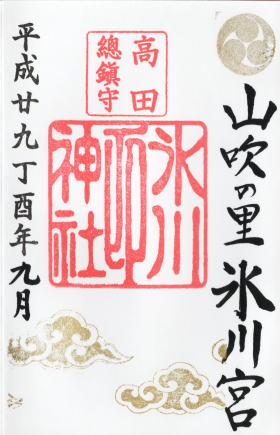 山吹の里 氷川宮
高田
總鎮守
氷川
神社
平成廿九丁酉年九月